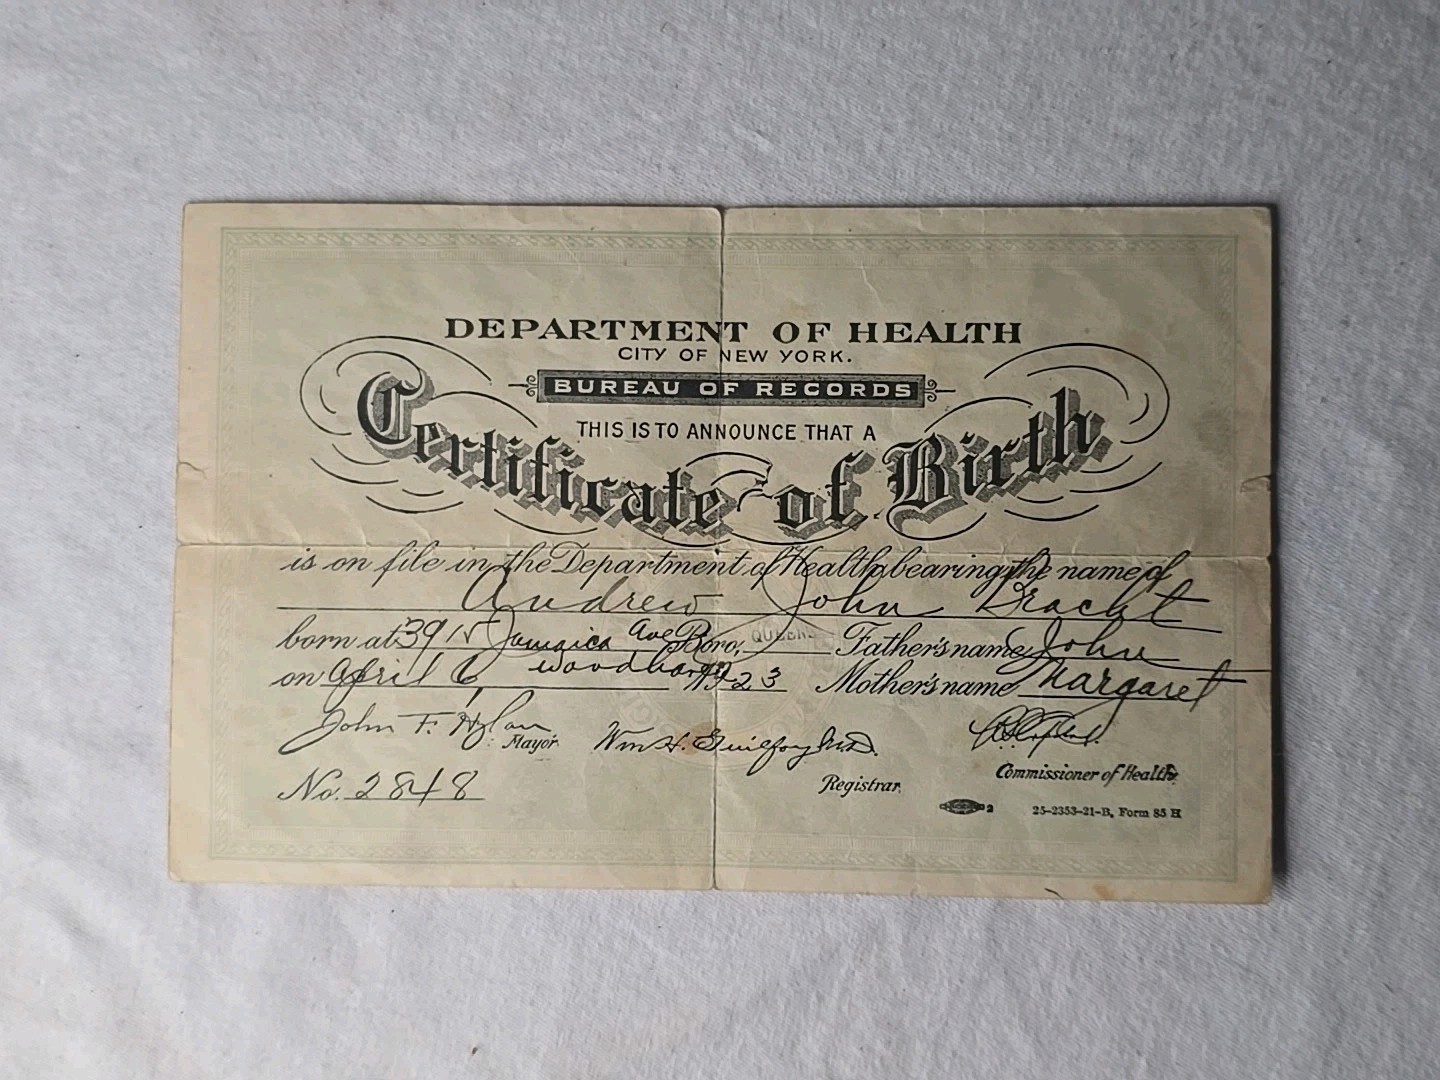 DEPARTMENT OF HEALTH
CITY OF NEW YORK.
BUREAU OF RECORDS
THIS IS TO ANNOUNCE THAT A
Certificate of Birth
is on file in the Department of Health bearing the name of
Andrew John Bracht
born at 39 Jamaica Ave Boro, QUEENS Father's name John
on April 6 1923 Mother's name Margaret
John F. Hylan Mayor. Wm H. Guilfoy M.D.
No. 2848 Registrar. Commissioner of Health.
2 25-2353-21-B, Form 85 H